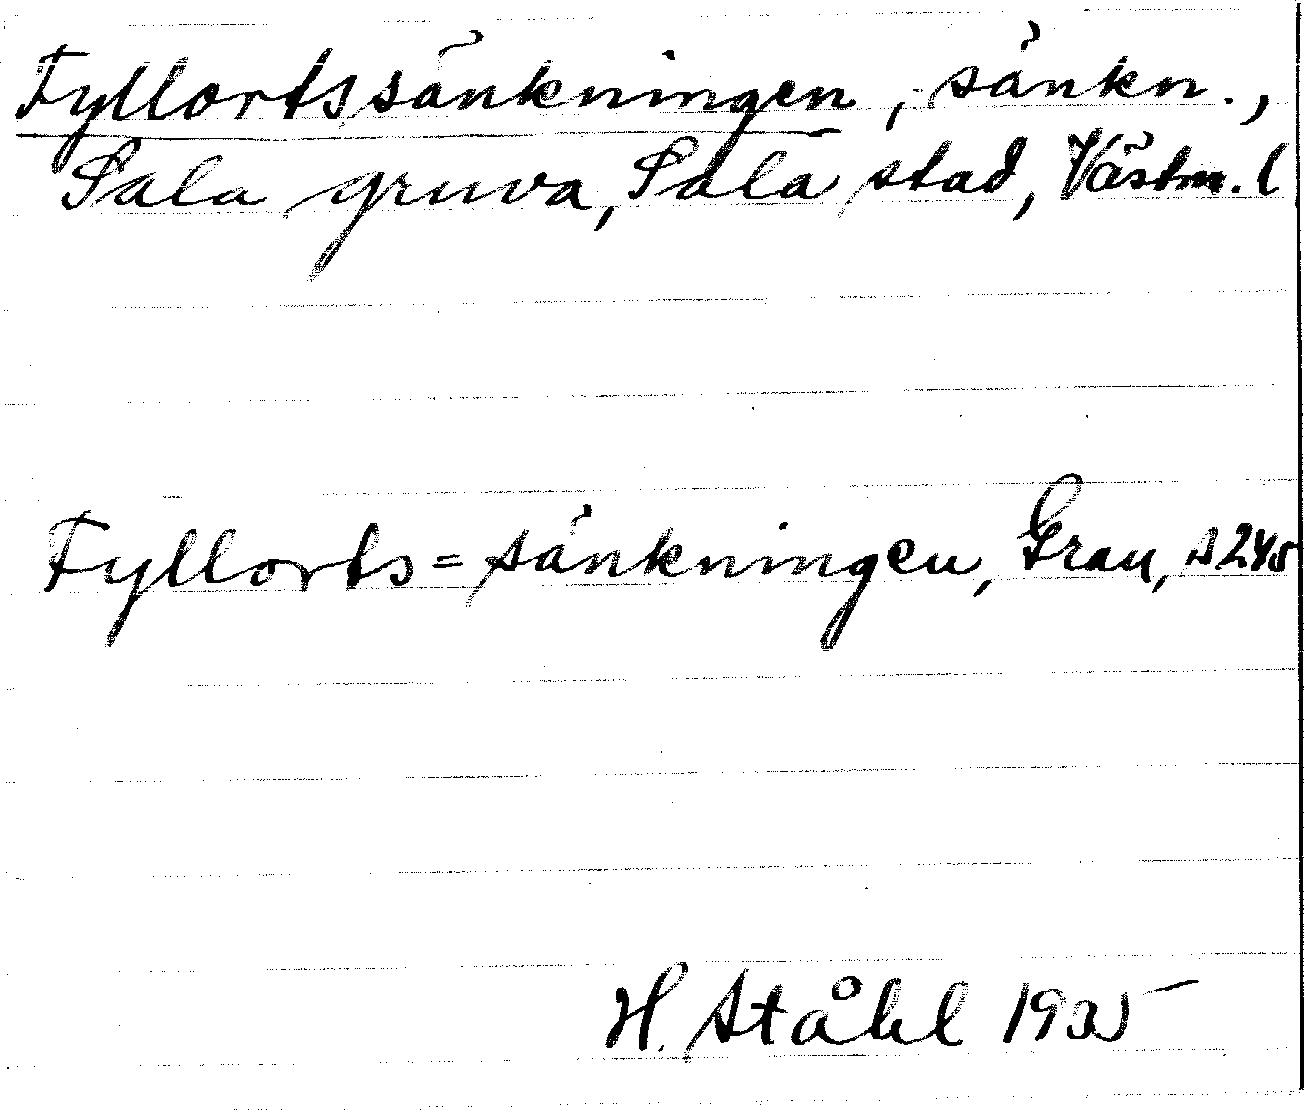 Fyllortssänkningen, sänkn.,
Sala gruva, Sala stad, Västm. l
Fyllorts=sänkningen, Grau, s 245
H. Ståhl 1935